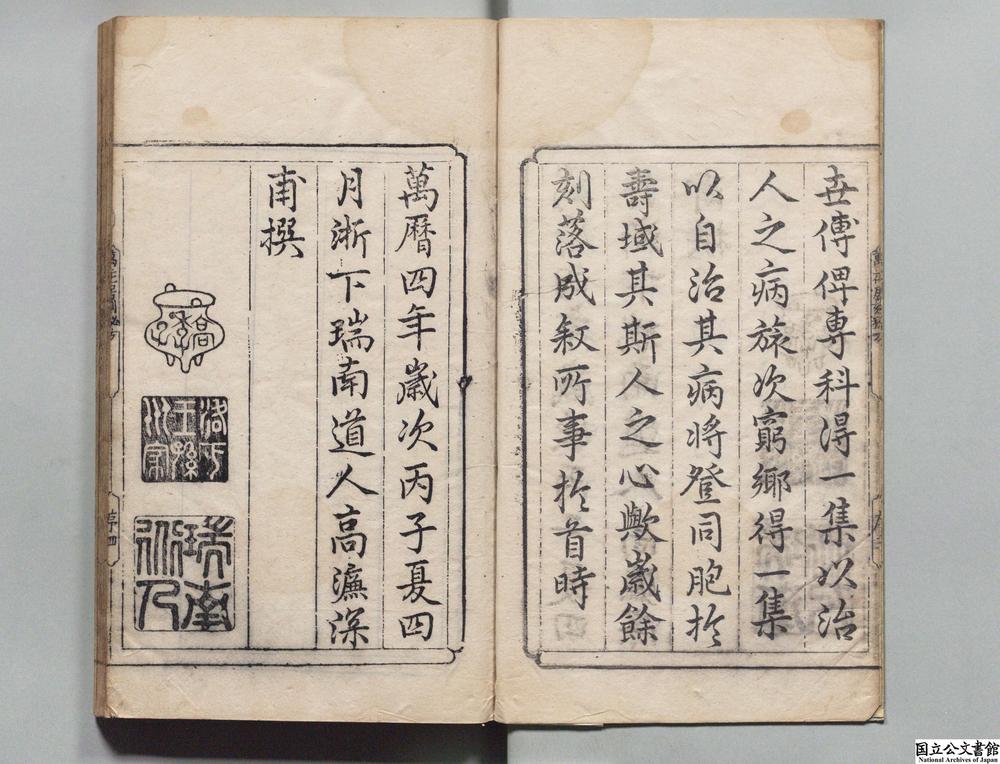 世傳俾專科淂一集以治
人之病旅次窮鄉得一集
以自治其病將登同胞扵
壽域其斯人之心歟歲餘
刻落成叙所事扵首時
萬曆四年歲次丙子夏四
月浙下瑞南道人高濂深
甫撰
序四
国立公文書館
National Archives of Japan